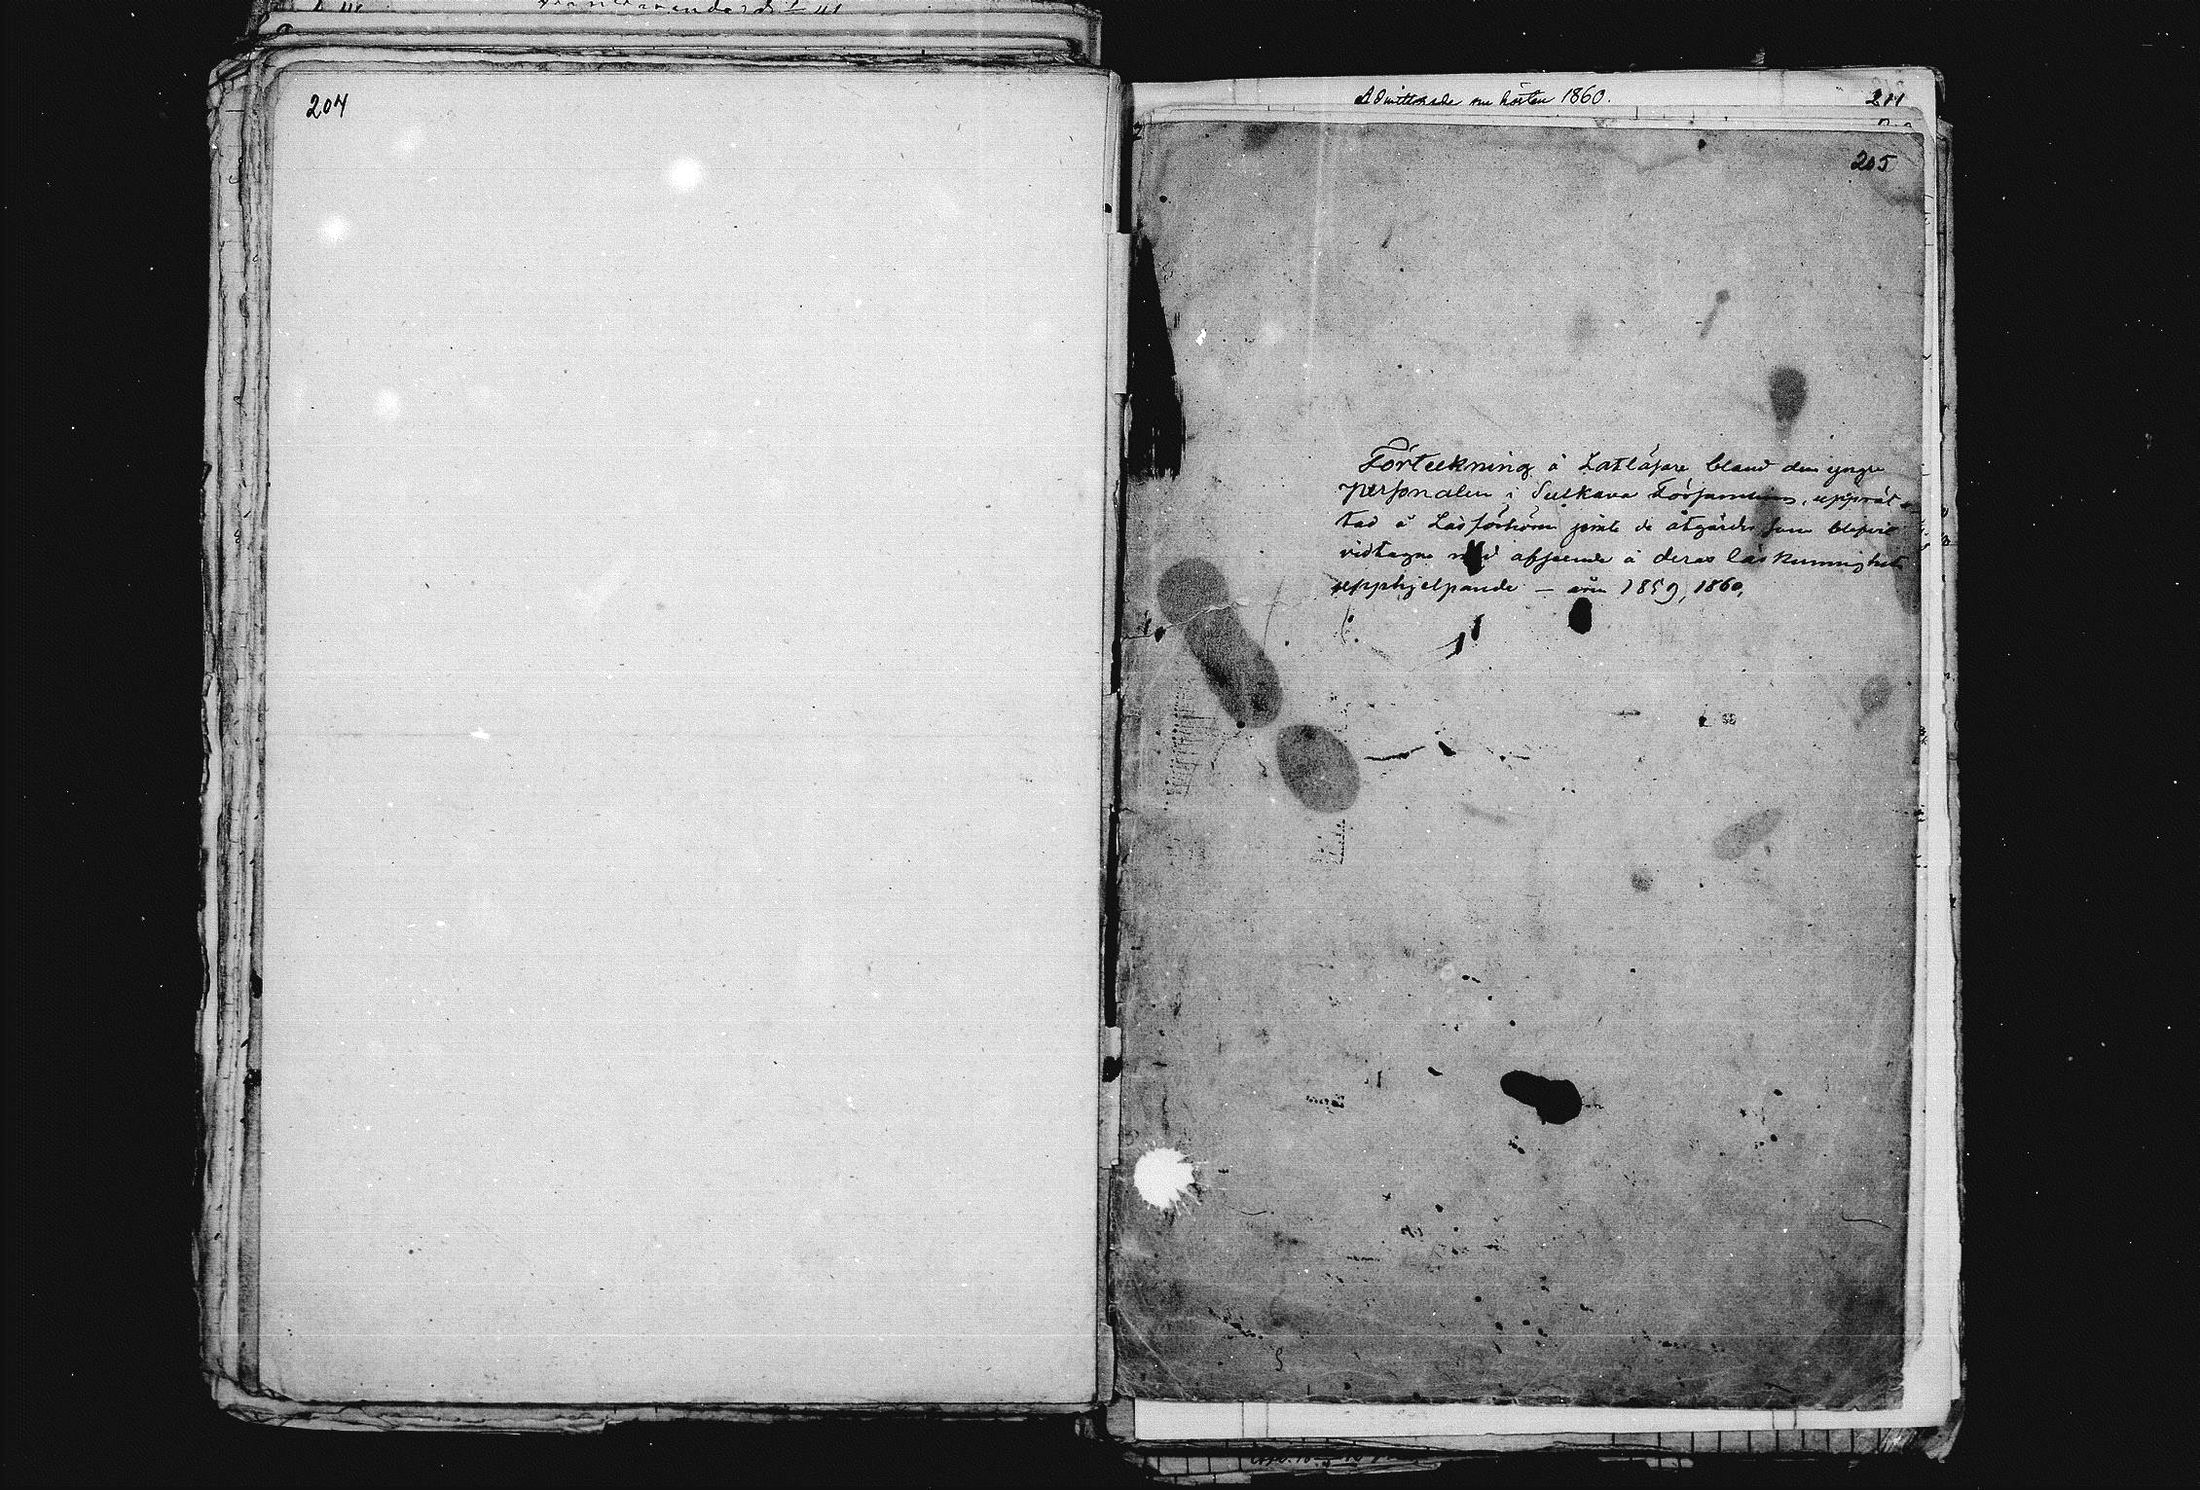 204
Admitterade om hösten 1860.
211
205
Förteckning å Latläsare bland den yngre
personalen i Sulkava Församling, upprät-
tad å Läsförhören jemte de åtgärder som blifvit
vidtagne med afseende å deras läskunnighets
upphjelpande — åren 1859, 1860,